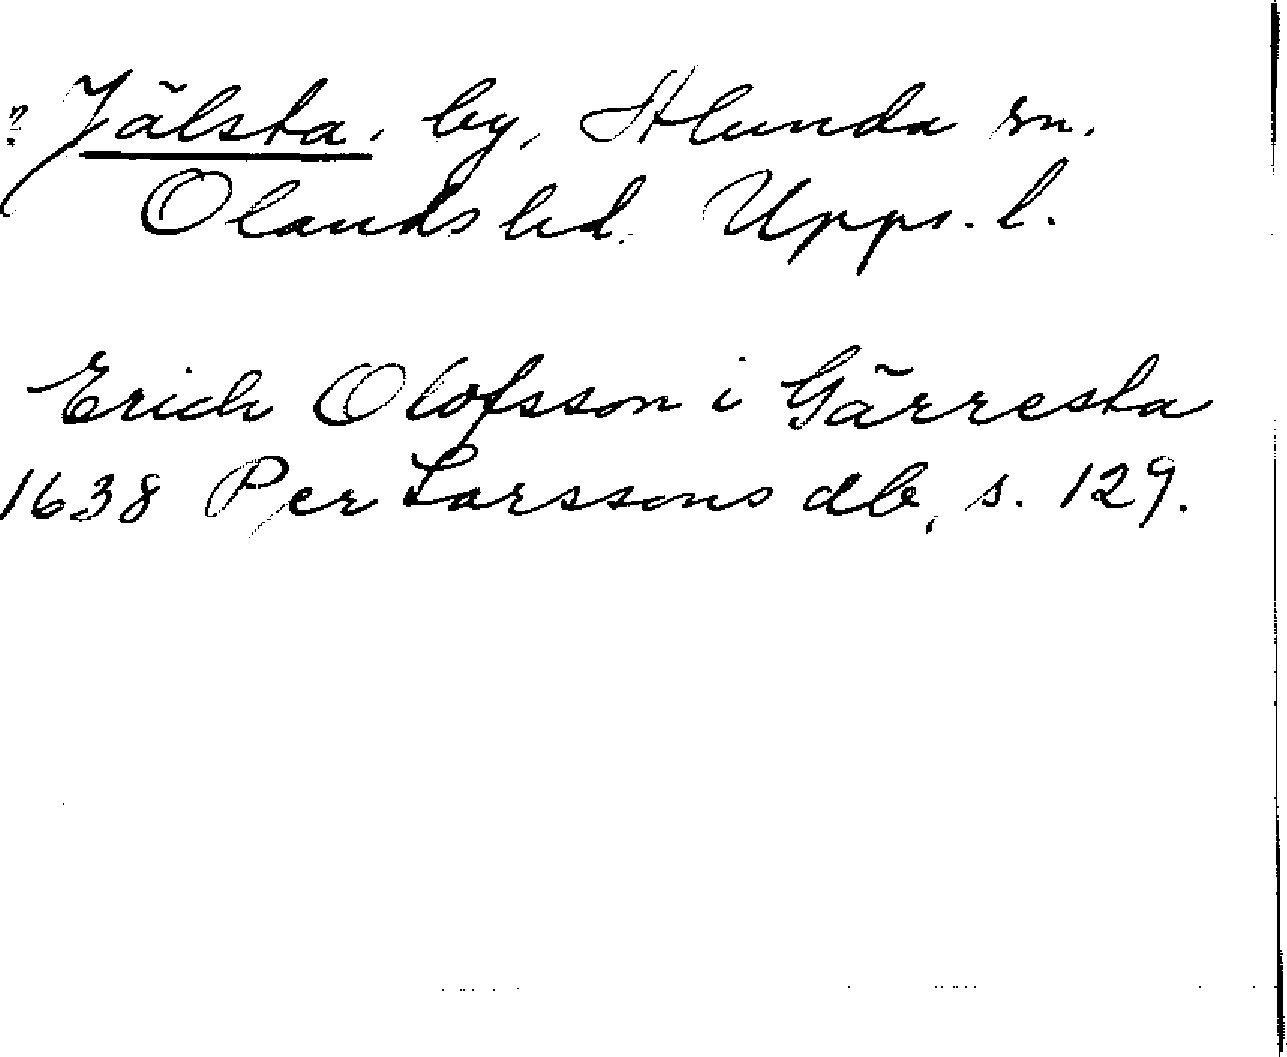 ? Jälsta, by, Stlunda sn.
Olands hd. Upps. l.
Erich Olofsson i Gärresta
1638 Per Larssons db, s. 129.